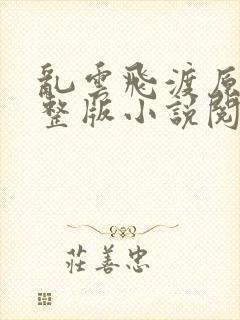 亂雲飛渡原
整版小説閱
莊善忠